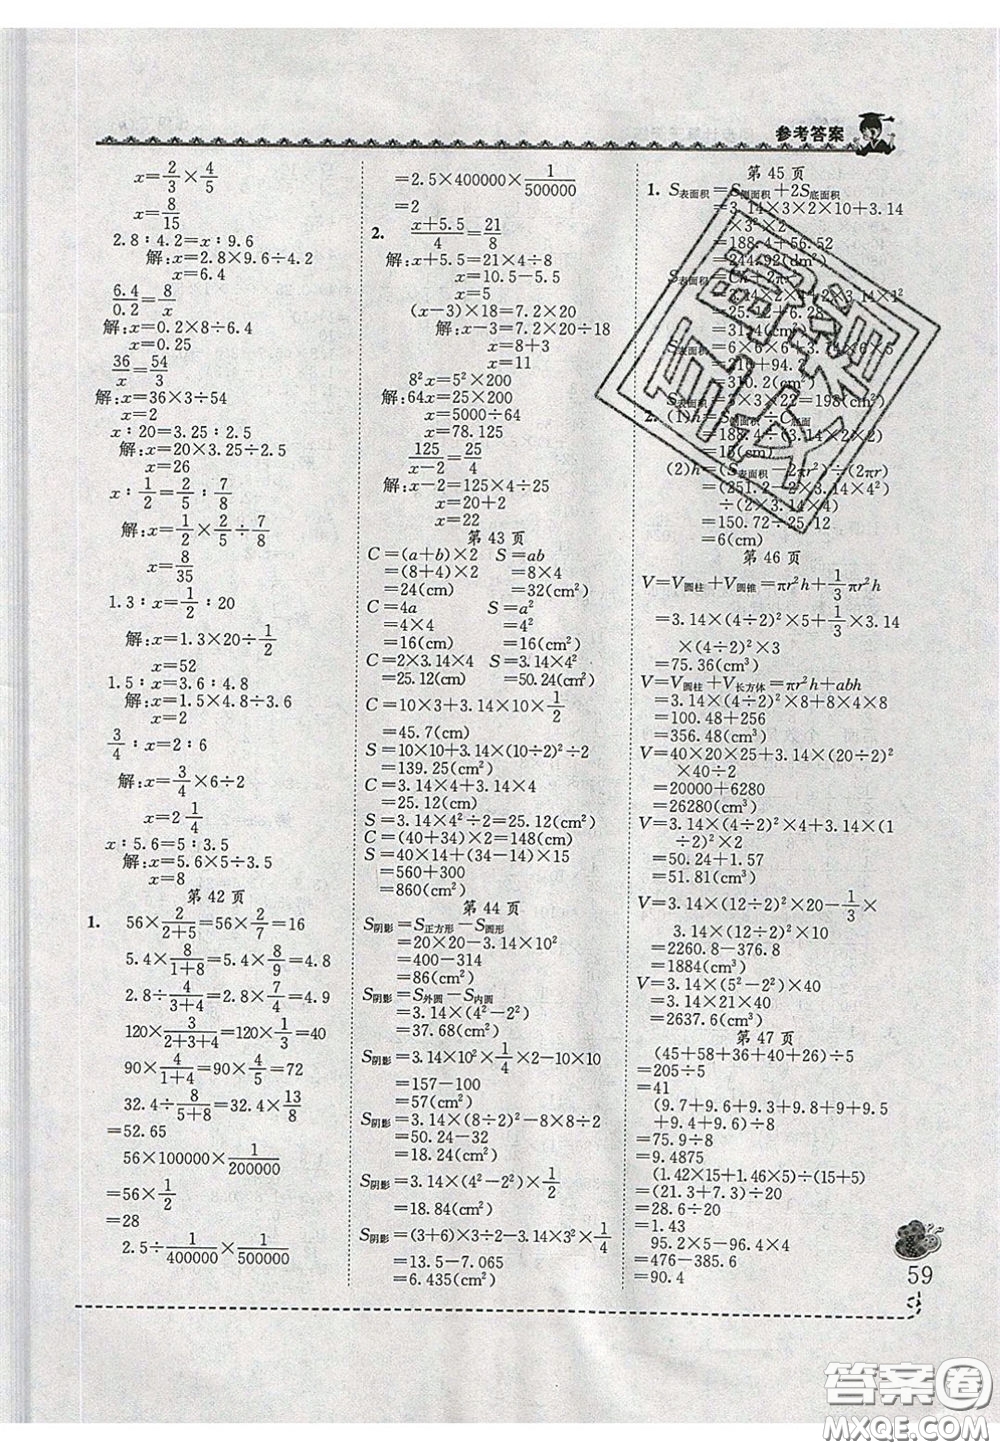 参考答案
x=2/3×4/5
x=8/15
2.8∶4.2=x∶9.6
解:x=2.8×9.6÷4.2
x=6.4
6.4/0.2=8/x
解:x=0.2×8÷6.4
x=0.25
36/x=54/3
解:x=36×3÷54
x=2
x∶20=3.25∶2.5
解:x=20×3.25÷2.5
x=26
x∶1/2=2/5∶7/8
解:x=1/2×2/5÷7/8
x=8/35
1.3∶x=1/2∶20
解:x=1.3×20÷1/2
x=52
1.5∶x=3.6∶4.8
解:x=1.5×4.8÷3.6
x=2
3/4∶x=2∶6
解:x=3/4×6÷2
x=2 1/4
x∶5.6=5∶3.5
解:x=5.6×5÷3.5
x=8
第 42 页
1. 56×2/(2+5)=56×2/7=16
5.4×8/(1+8)=5.4×8/9=4.8
2.8÷4/(3+4)=2.8×7/4=4.9
120×3/(2+3+4)=120×1/3=40
90×4/(1+4)=90×4/5=72
32.4÷8/(5+8)=32.4×13/8
=52.65
56×100000×1/200000
=56×1/2
=28
2.5÷1/400000×1/500000
=2.5×400000×1/500000
=2
2. (x+5.5)/4=21/8
解:x+5.5=21×4÷8
x=10.5-5.5
x=5
(x-3)×18=7.2×20
解:x-3=7.2×20÷18
x=8+3
x=11
8²x=5²×200
解:64x=25×200
x=5000÷64
x=78.125
125/(x-2)=25/4
解:x-2=125×4÷25
x=20+2
x=22
第 43 页
C=(a+b)×2 S=ab
=(8+4)×2 =8×4
=24(cm) =32(cm²)
C=4a S=a²
=4×4 =4²
=16(cm) =16(cm²)
C=2×3.14×4 S=3.14×4²
=25.12(cm) =50.24(cm²)
C=10×3+3.14×10×1/2
=45.7(cm)
S=10×10+3.14×(10÷2)²÷2
=139.25(cm²)
C=3.14×4+3.14×4
=25.12(cm)
S=3.14×4²÷2=25.12(cm²)
C=(40+34)×2=148(cm)
S=40×14+(34-14)×15
=560+300
=860(cm²)
第 44 页
S阴影=S正方形-S圆形
=20×20-3.14×10²
=400-314
=86(cm²)
S阴影=S外圆-S内圆
=3.14×(4²-2²)
=37.68(cm²)
S阴影=3.14×10²×1/4×2-10×10
=157-100
=57(cm²)
S阴影=3.14×(8÷2)²-8×8÷2
=50.24-32
=18.24(cm²)
S阴影=3.14×(4²-2²)×1/2
=18.84(cm²)
S阴影=(3+6)×3÷2-3.14×3²×1/4
=13.5-7.065
=6.435(cm²)
第 45 页
1. S表面积=S侧面积+2S底面积
=3.14×3×2×10+3.14
×3²×2
=188.4+56.52
=244.92(dm²)
S表面积=Ch+2πr²
=25.12+6.28
=31.4(cm²)
S表面积=6×6×6+3.14×
=216+94.2
=310.2(cm²)
S表面积=3×3×22=198(cm²)
2. (1)h=S侧面积÷C底面
=188.4÷(3.14×2×2)
=15(cm)
(2)h=(S表面积-2πr²)÷(2πr)
=(251.2-2×3.14×4²)
÷(2×3.14×4)
=150.72÷25.12
=6(cm)
第 46 页
V=V圆柱+V圆锥=πr²h+1/3πr²h
=3.14×(4÷2)²×5+1/3×3.14
×(4÷2)²×3
=75.36(cm³)
V=V圆柱+V长方体=πr²h+abh
=3.14×(4÷2)²×8+8×4×8
=100.48+256
=356.48(cm³)
V=40×20×25+3.14×(20÷2)²
×40÷2
=20000+6280
=26280(cm³)
V=3.14×(4÷2)²×4+3.14×(1
÷2)²×2
=50.24+1.57
=51.81(cm³)
V=3.14×(12÷2)²×20-1/3×
3.14×(12÷2)²×10
=2260.8-376.8
=1884(cm³)
V=3.14×(5²-2²)×40
=3.14×21×40
=2637.6(cm³)
第 47 页
(45+58+36+40+26)÷5
=205÷5
=41
(9.7+9.6+9.3+9.4+9.6
+9.4+9.5+9.4)÷8
=75.9÷8
=9.4875
(1.42×15+1.46×5)÷(15+5)
=28.6÷20
=1.43
95.2×5-96.4×4
=476-385.6
=90.4
59
答案圈
MXQE.COM